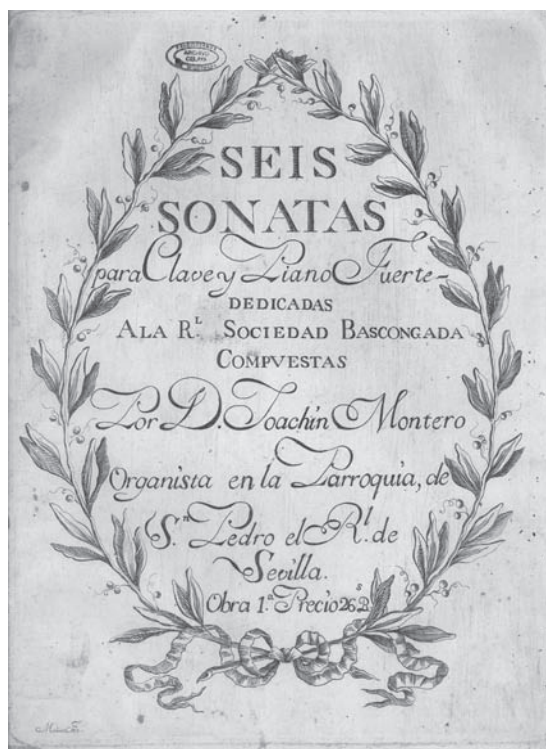 SEIS
SONATAS
para Clave y Piano Fuerte
DEDICADAS
A LA R.L SOCIEDAD BASCONGADA
COMPVESTAS
Por D. Joachîn Montero
Organista en la Parroquia, de
S.n Pedro el R.l de
Sevilla.
Obra 1.a Precio 26 Rs